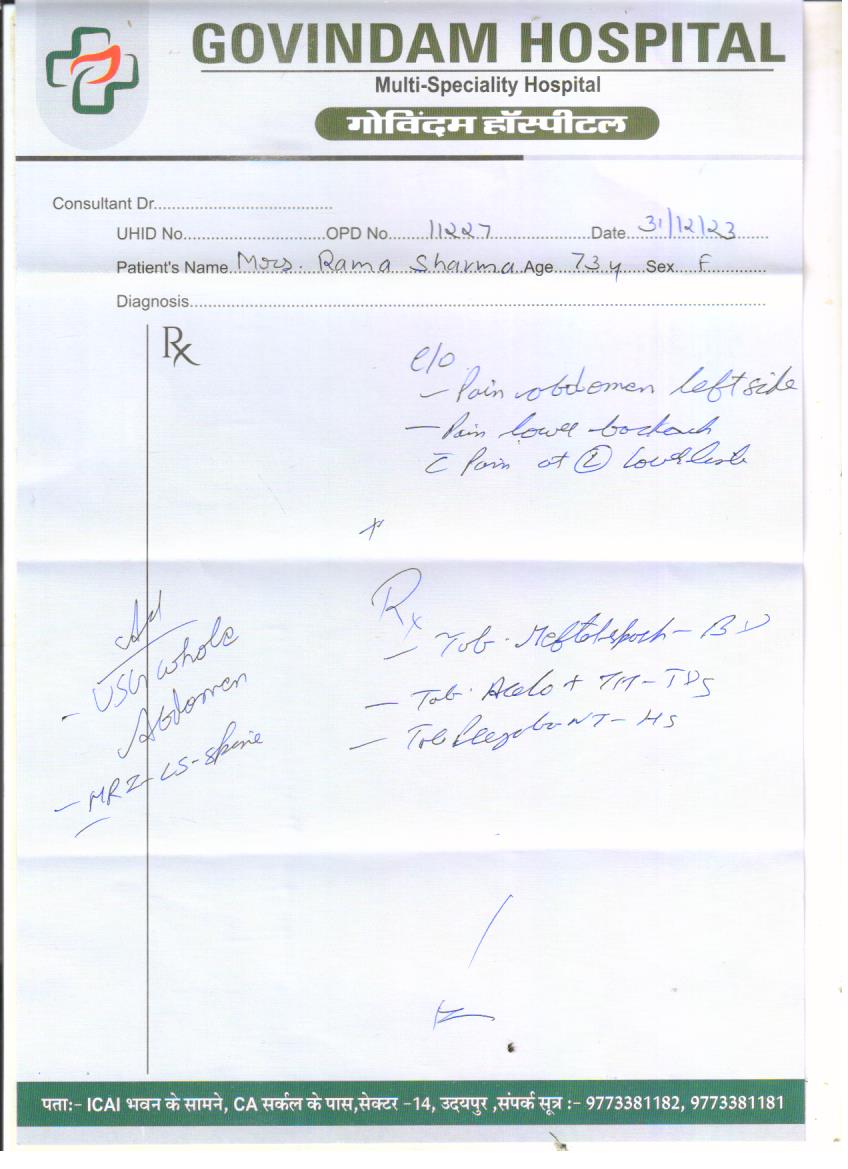 GOVINDAM HOSPITAL
Multi-Speciality Hospital
गोविंदम हॉस्पीटल
Consultant Dr.
UHID No. OPD No. 11227 Date 31/12/23
Patient's Name Mrs. Rama Sharma Age 73 y Sex F
Diagnosis
Rx
c/o
- Pain abdomen left side
- Pain lower
Pain at Ⓛ
Rx
- Tab. - BD
- Tab. - TDS
- Tab NT - HS
Ad
- USG whole
Abdomen
- MRI - LS - spine
पता:- ICAI भवन के सामने, CA सर्कल के पास,सेक्टर -14, उदयपुर ,संपर्क सूत्र :- 9773381182, 9773381181